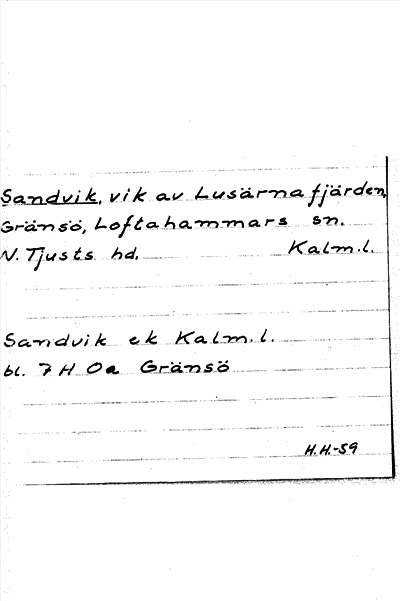 Sandvik, vik av Lusärnafjärden,
Gränsö, Loftahammars sn.
N. Tjusts hd. Kalm.l.
Sandvik ek Kalm.l.
bl. 7 H Oa Gränsö
H.H.-59